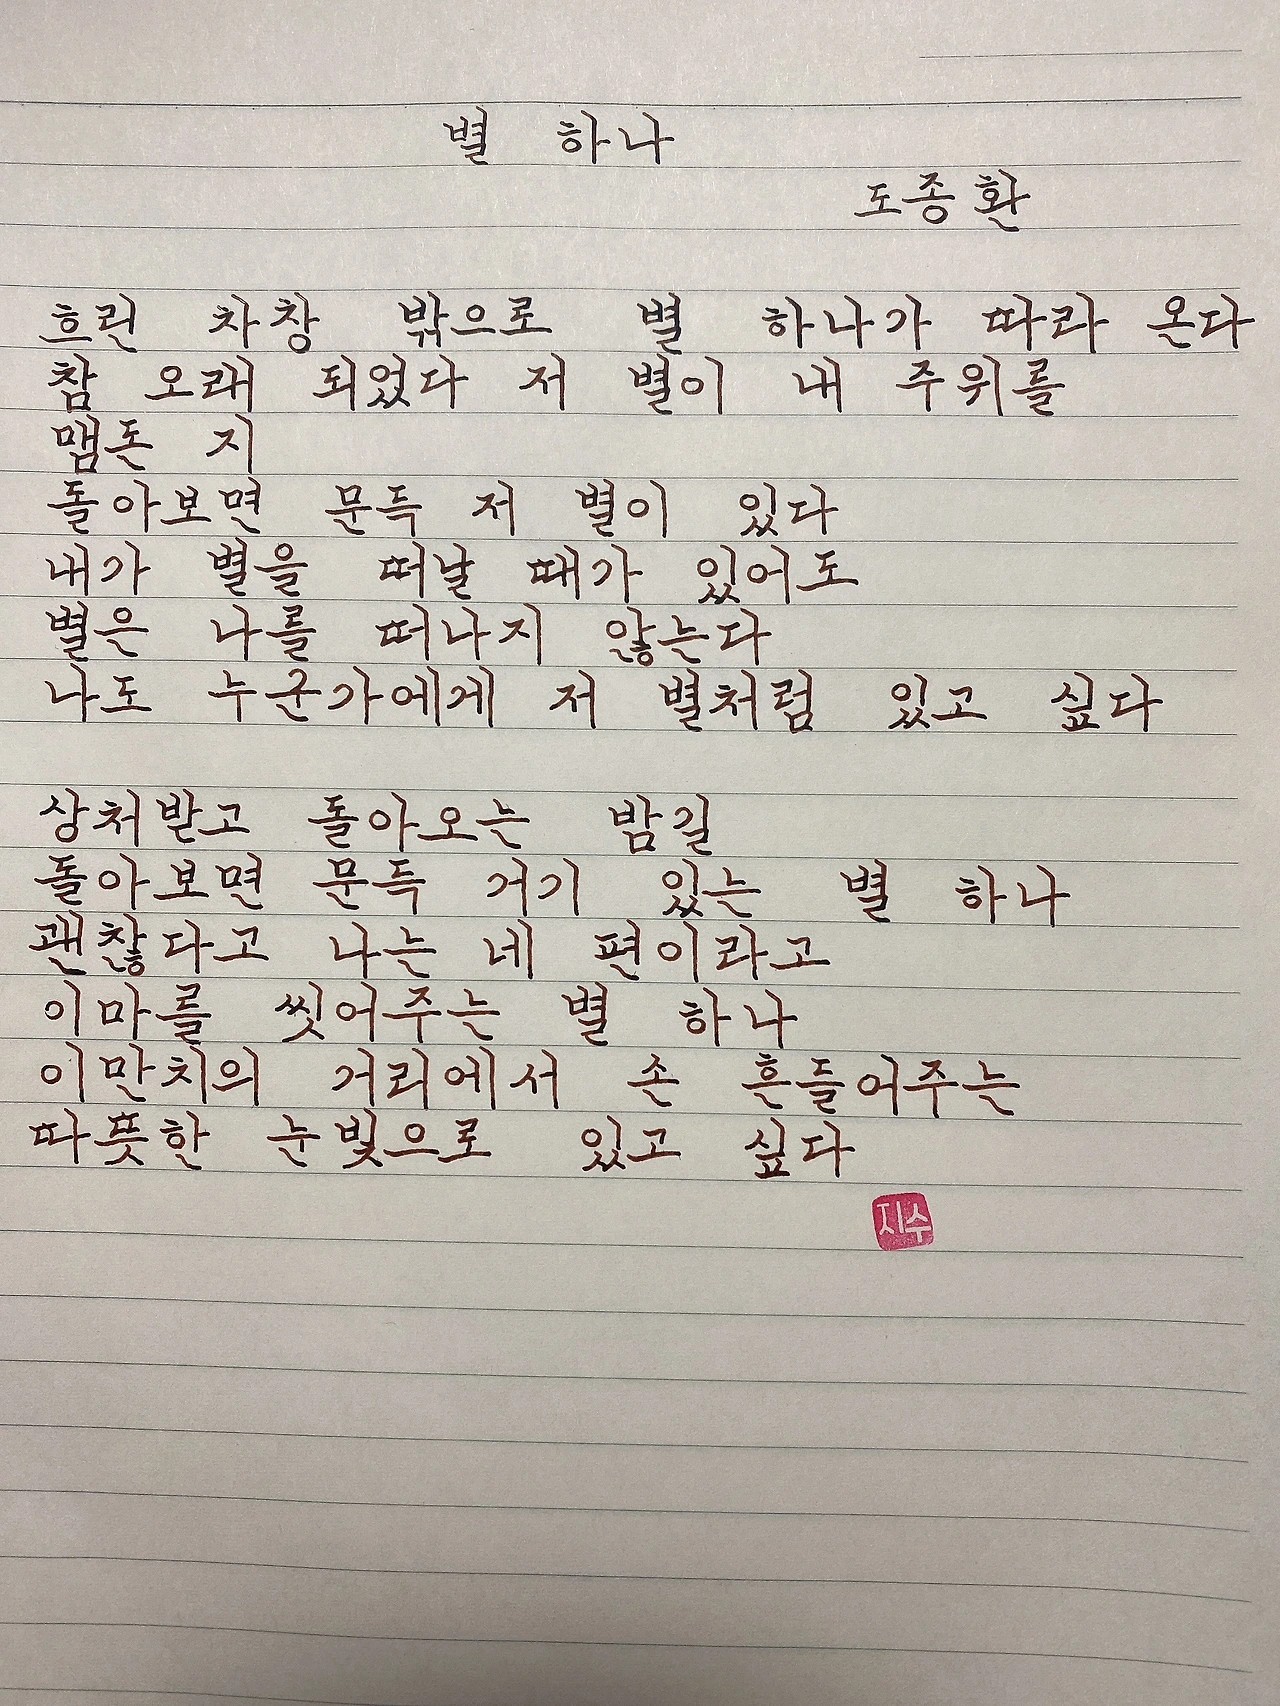 별 하나
도종환
흐린 차창 밖으로 별 하나가 따라 온다
참 오래 되었다 저 별이 내 주위를
맴돈 지
돌아보면 문득 저 별이 있다
내가 별을 떠날 때가 있어도
별은 나를 떠나지 않는다
나도 누군가에게 저 별처럼 있고 싶다
상처받고 돌아오는 밤길
돌아보면 문득 거기 있는 별 하나
괜찮다고 나는 네 편이라고
이마를 씻어주는 별 하나
이만치의 거리에서 손 흔들어주는
따뜻한 눈빛으로 있고 싶다
지수